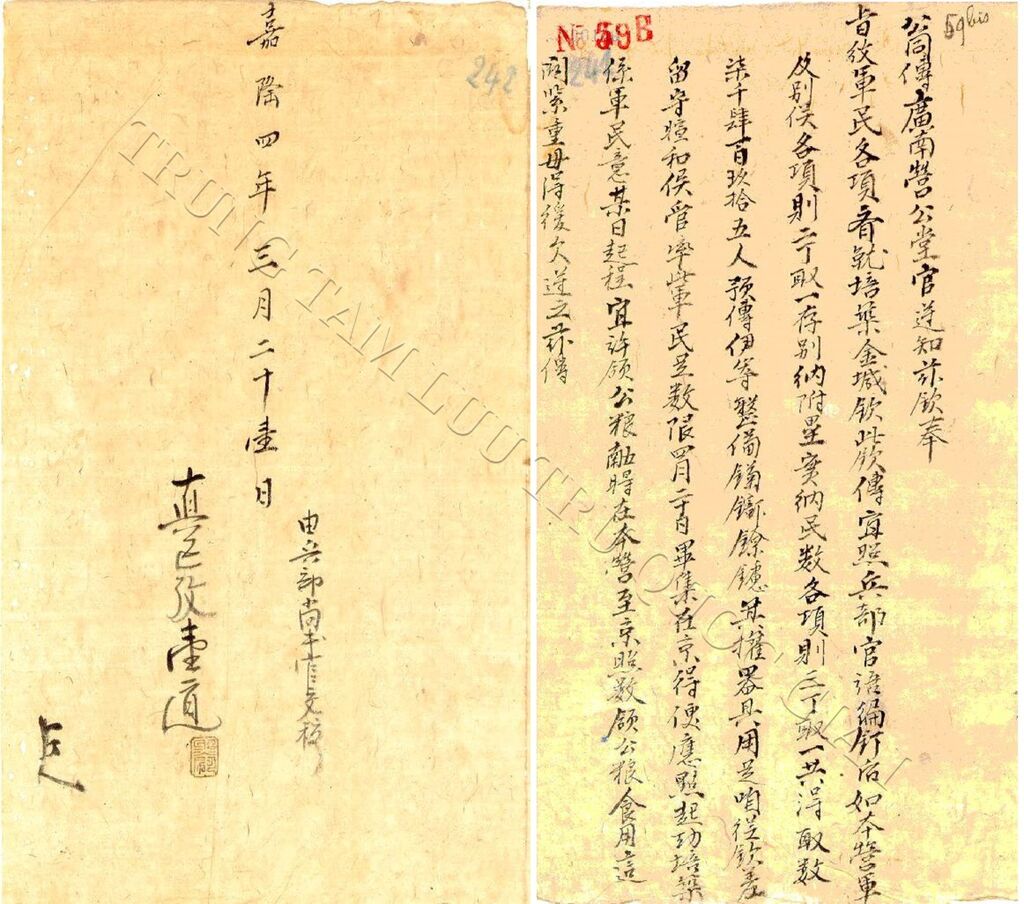 59 bis
№ 59 B
242
公同傳廣南營公堂官遵知茲欽奉
旨攷軍民各項斉就培築金城欽此欽傳宜照兵部官編釘后如本營軍
及別侯各項則二丁取一存別納附壘寔納民数各項則三丁取一共淂取数
柒千肆百玖拾五人預傳伊等整俻其擢器具用足咱從欽差
留守暄和侯管率此軍民足数限四月二十日畢集在京得便應照起功培築
係軍民意某日起程宜許領公粮在本營至京照数領公粮食用這
関緊重毋得後欠遵之茲傳
242
嘉隆四年三月二十壹日
由兵部尚書官
真已攷壹道
TRUNG TAM LUU TRU QUOC GIA I